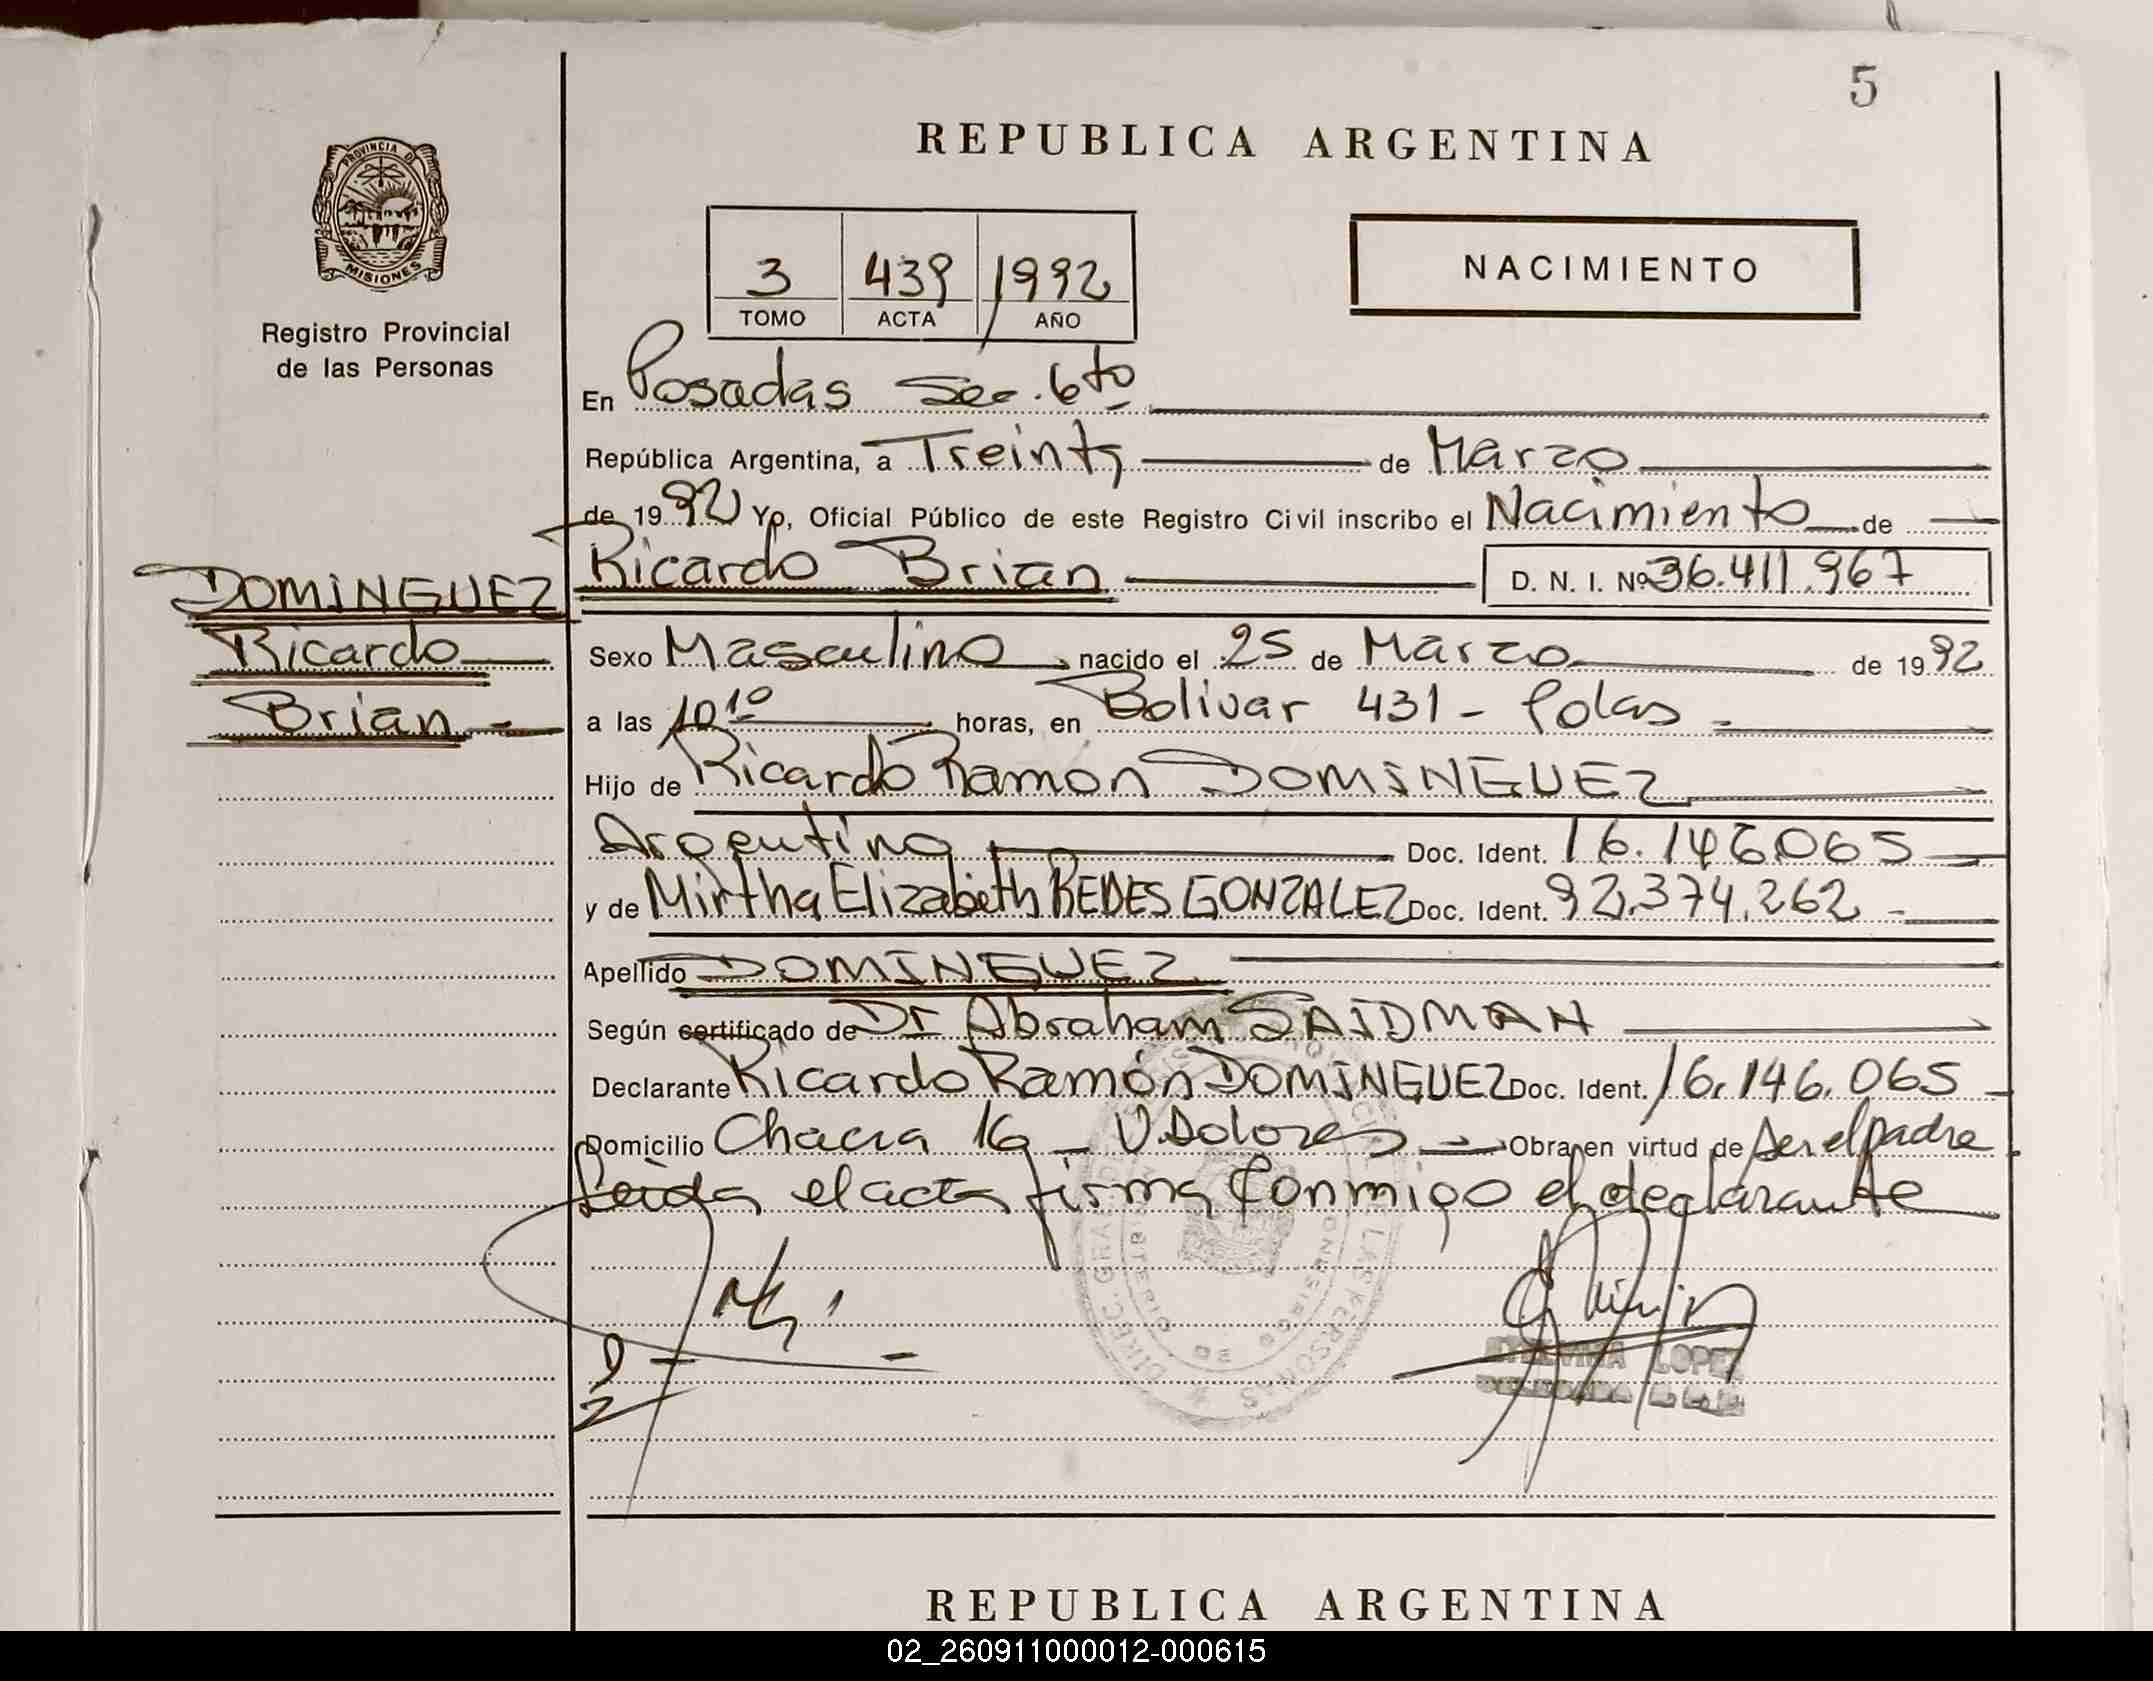 5
REPUBLICA ARGENTINA
PROVINCIA DE
MISIONES
Registro Provincial
de las Personas
3 439 1992
TOMO ACTA AÑO
NACIMIENTO
En Posadas Sec. 6to
República Argentina, a Treinta de Marzo
de 1992 Yo, Oficial Público de este Registro Civil inscribo el Nacimiento de
Ricardo Brian D. N. I. Nº 36.411.967
DOMINGUEZ
Ricardo
Brian
Sexo Masculino nacido el 25 de Marzo de 1992
a las 10 10 horas, en Bolivar 431 - Pdas
Hijo de Ricardo Ramon DOMINGUEZ
Argentino Doc. Ident. 16.146.065
y de Mirtha Elizabeth REDES GONZALEZ Doc. Ident. 92.374.262
Apellido DOMINGUEZ
Según certificado de Dr Abraham SAIDMAN
Declarante Ricardo Ramón DOMINGUEZ Doc. Ident. 16.146.065
Domicilio Chacra 16 - V. Dolores Obra en virtud de ser el padre
Leida el acta firma conmigo el declarante
LOPEZ
REPUBLICA ARGENTINA
02_260911000012-000615